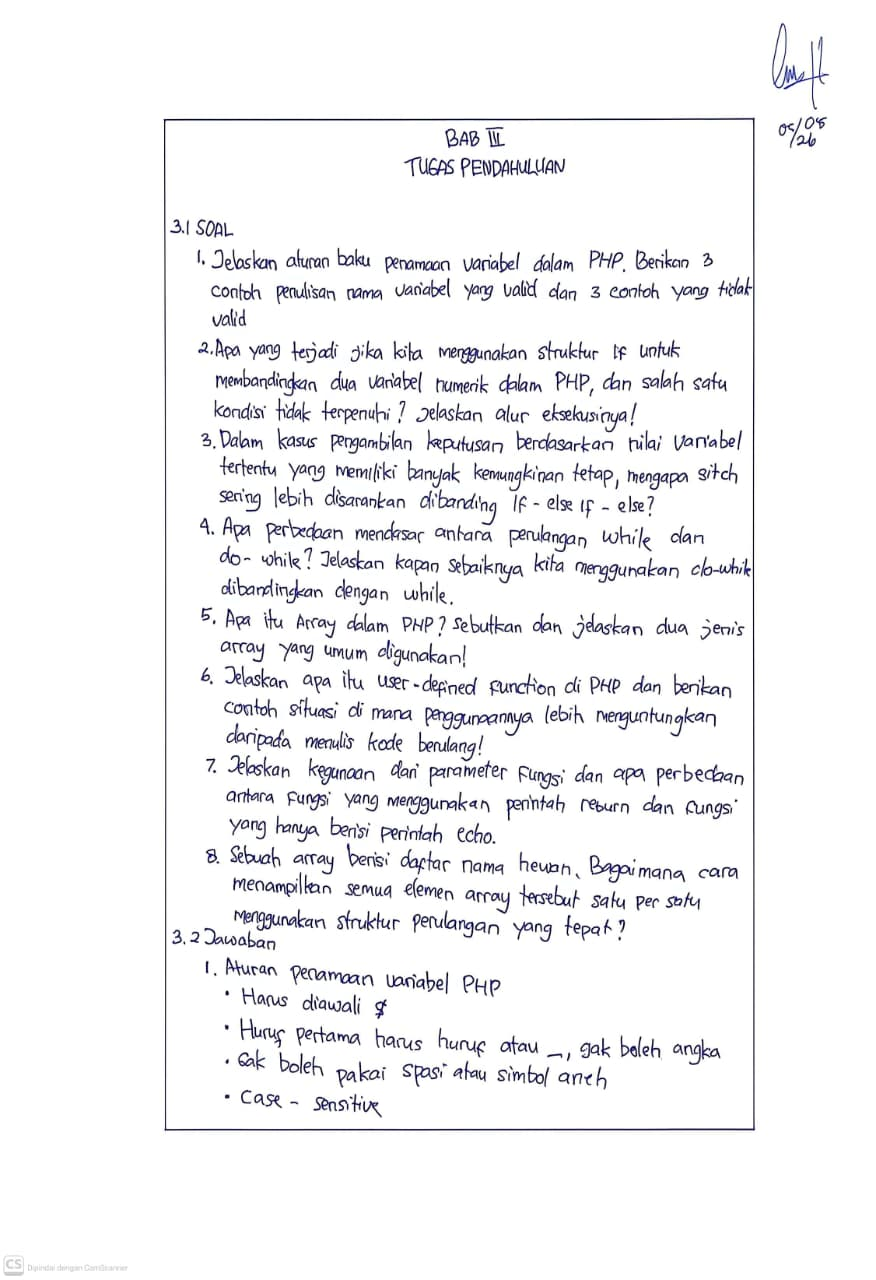 05/08
/26
BAB III
TUGAS PENDAHULUAN
3.1 SOAL
1. Jelaskan aturan baku penamaan variabel dalam PHP. Berikan 3
contoh penulisan nama variabel yang valid dan 3 contoh yang tidak
valid
2. Apa yang terjadi jika kita menggunakan struktur If untuk
membandingkan dua variabel numerik dalam PHP, dan salah satu
kondisi tidak terpenuhi? Jelaskan alur eksekusinya!
3. Dalam kasus pengambilan keputusan berdasarkan nilai variabel
tertentu yang memiliki banyak kemungkinan tetap, mengapa sitch
sering lebih disarankan dibanding If - else If - else?
4. Apa perbedaan mendasar antara perulangan while dan
do - while? Jelaskan kapan sebaiknya kita menggunakan do-while
dibandingkan dengan while.
5. Apa itu Array dalam PHP? Sebutkan dan jelaskan dua jenis
array yang umum digunakan!
6. Jelaskan apa itu user-defined function di PHP dan berikan
contoh situasi di mana penggunaannya lebih menguntungkan
daripada menulis kode berulang!
7. Jelaskan kegunaan dari parameter fungsi dan apa perbedaan
antara fungsi yang menggunakan perintah reburn dan fungsi
yang hanya berisi perintah echo.
8. Sebuah array berisi daftar nama hewan, Bagaimana cara
menampilkan semua elemen array tersebut satu per satu
Menggunakan struktur perulangan yang tepat?
3.2 Jawaban
1. Aturan penamaan variabel PHP
• Harus diawali $
• Huruf pertama harus huruf atau _, gak boleh angka
• Gak boleh pakai spasi atau simbol aneh
• Case - sensitive
CS Dipindai dengan CamScanner